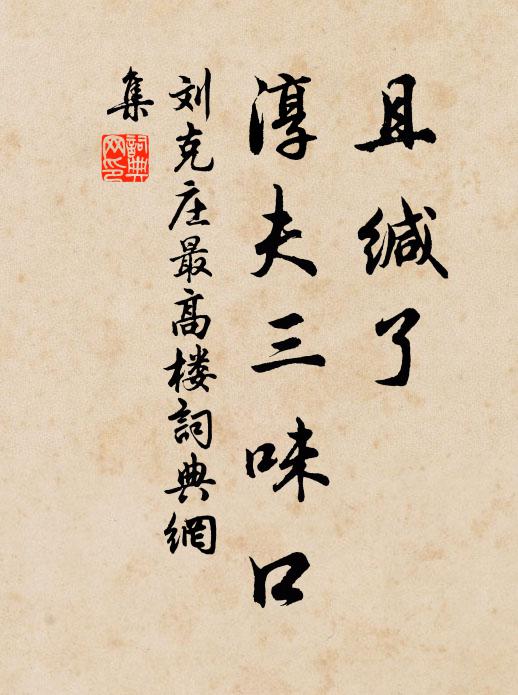 且缄了
淳夫三昧口
刘克庄最高楼詞典網
集
詞典
网印